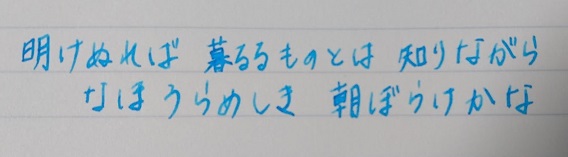 明けぬれば 暮るるものとは 知りながら
なほうらめしき 朝ぼらけかな